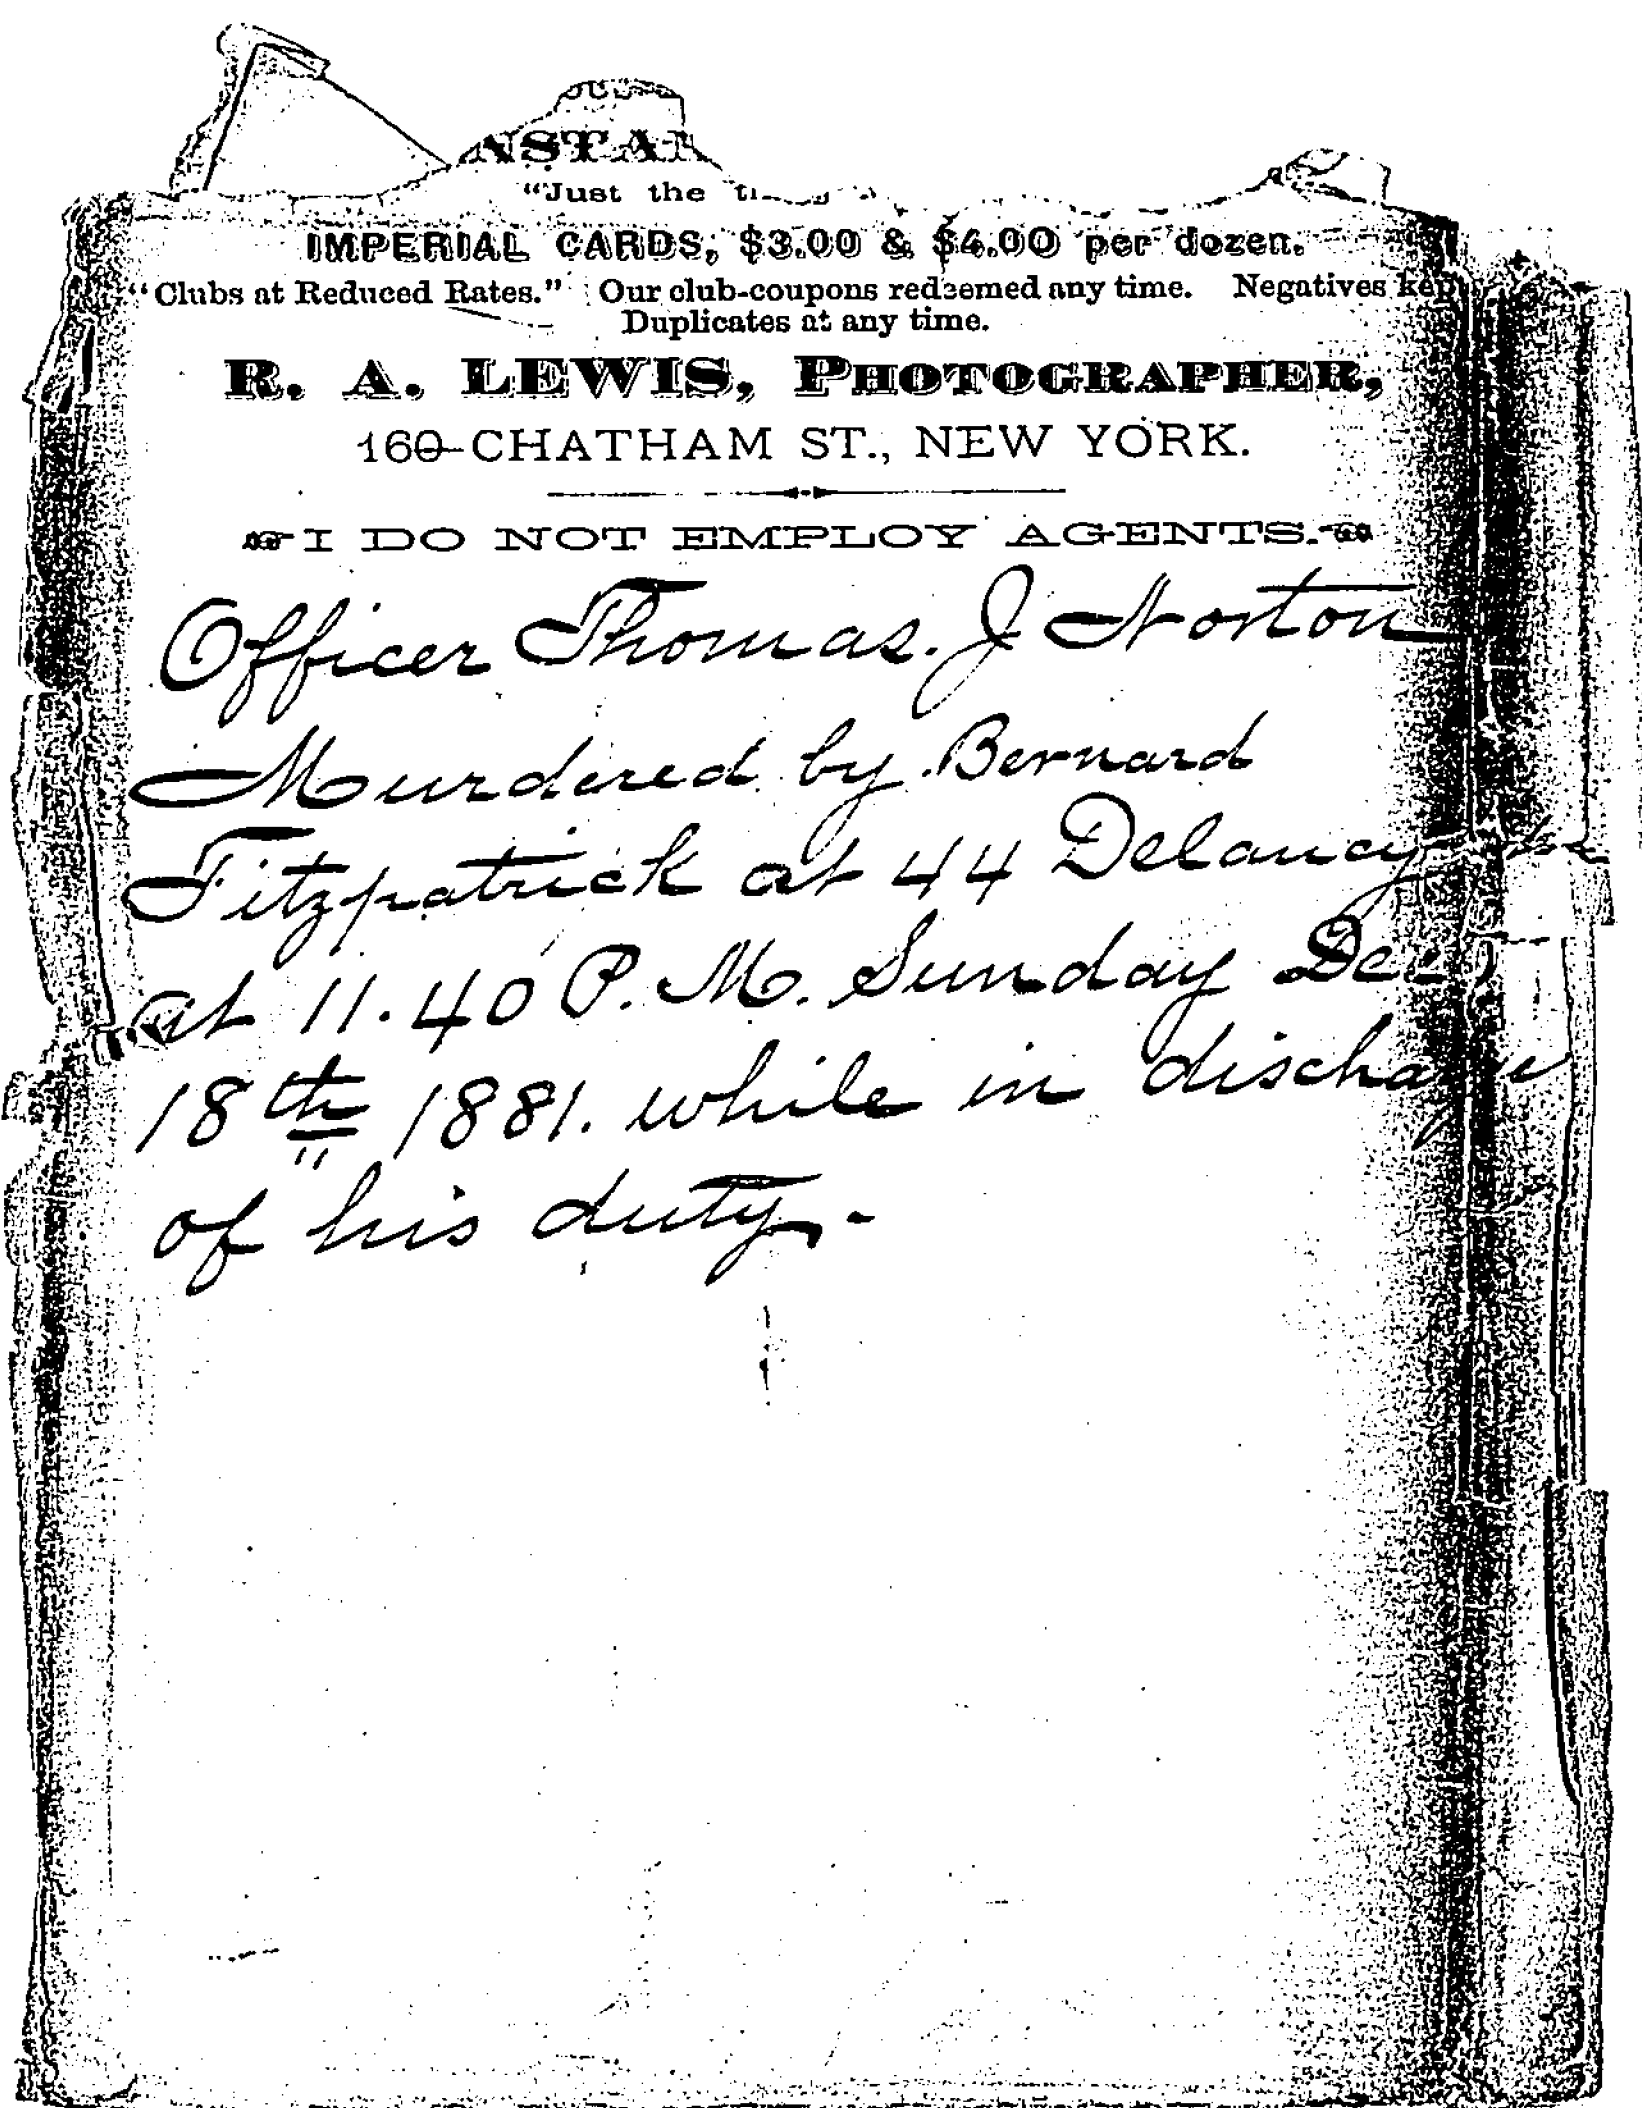 "Just the
IMPERIAL CARDS, $3.00 & $4.00 per dozen.
"Clubs at Reduced Rates." Our club-coupons redeemed any time. Negatives kept
Duplicates at any time.
R. A. LEWIS, PHOTOGRAPHER,
160 CHATHAM ST., NEW YORK.
I DO NOT EMPLOY AGENTS.
Officer Thomas. J Norton
Murdered by Bernard
Fitzpatrick at 44 Delancy
at 11.40 P. M. Sunday Dec
18th 1881. while in discharge
of his duty.-